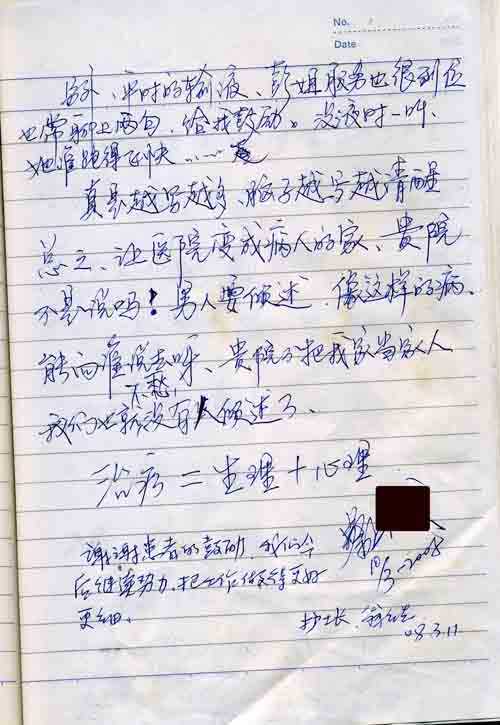 No.
Date
另外、平时的输液、彭姐服务也很到位
也常聊上两句、给我鼓励。没液时一叫、
她准跑得飞快……
真是越写越多、脑子越写越清醒
总之、让医院变成病人的家、贵院
不是说吗！男人要倾述、像这样的病、
能向谁说去呀、贵院不把我家当家人
我们也就没有人倾述了、
不愁
治疗＝生理＋心理
谢谢患者的鼓励 我们今
后继续努力、把工作做得更好
更细。
10/3-2008
护士长
08.3.11